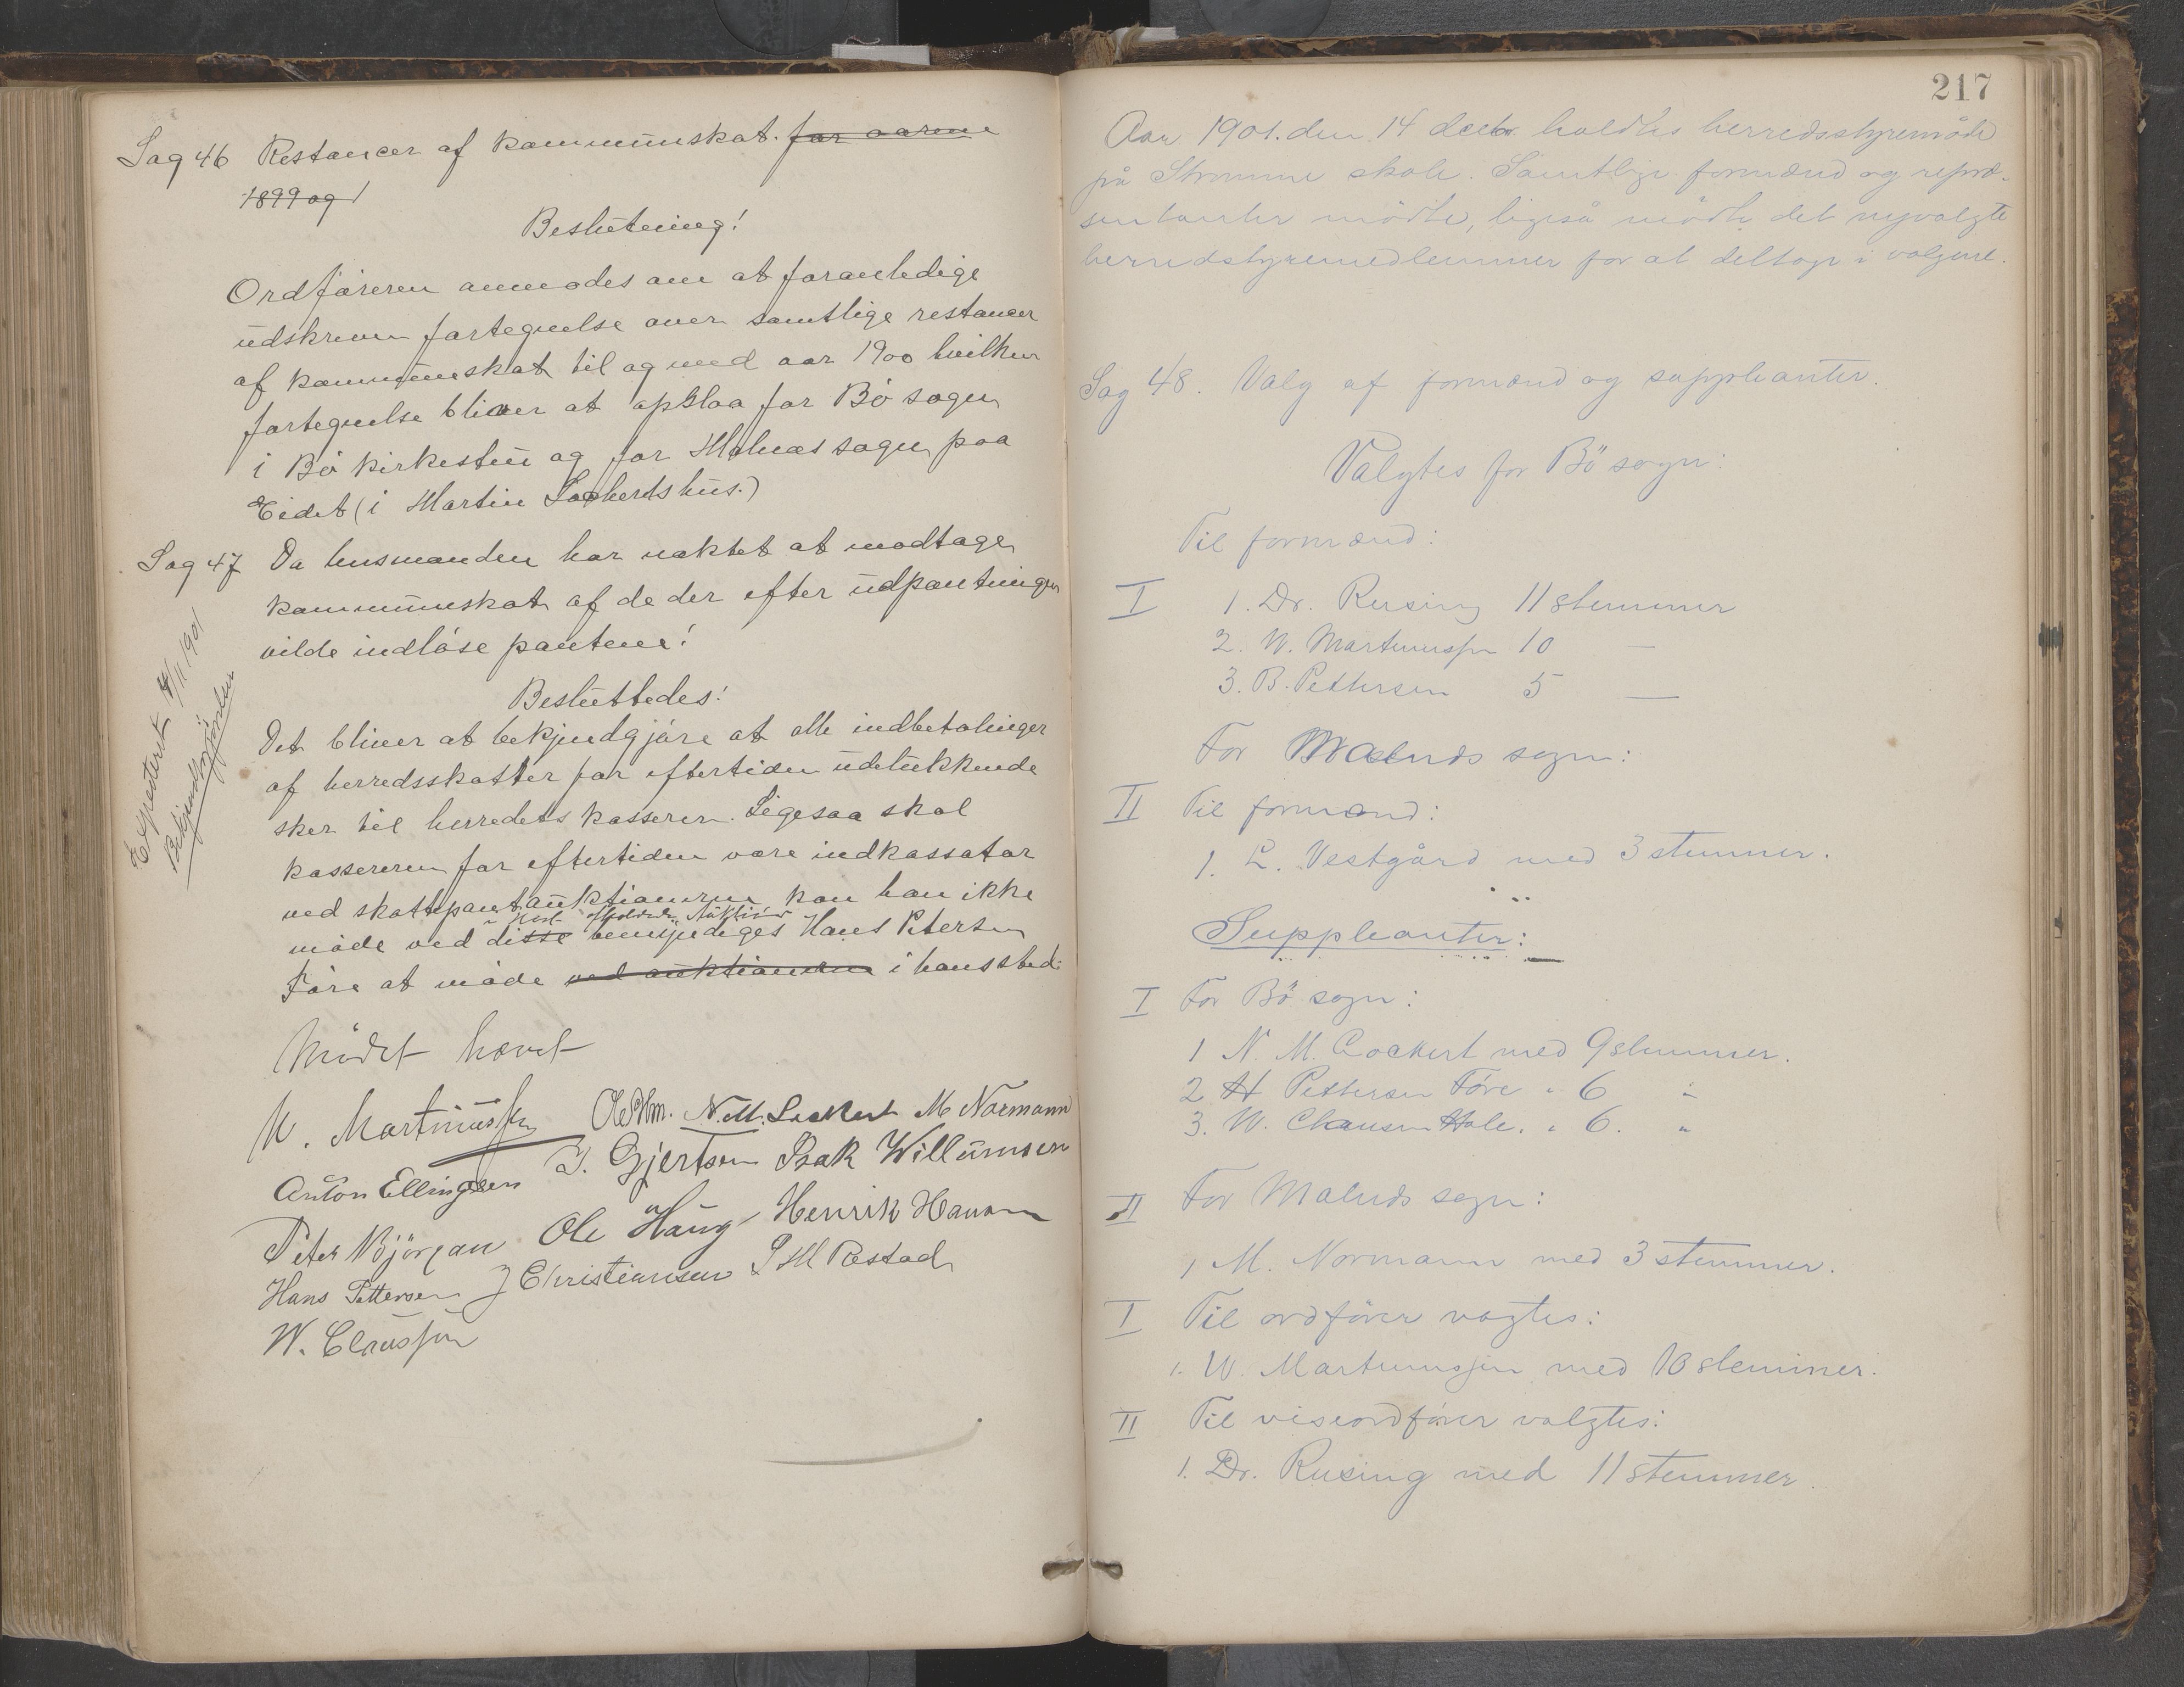 Sag 46 Restancer af kommunskat. for aarene
1899 og
Beslutning!
Ordføreren anmodes om at foranledige
udskreven fortegnelse over samtlige restancer
af kommuneskat til og med aar 1900 hvilken
fortegnelse bliver at opslaa for Bø sogn
i Bø kirkestue og for Malnes sogn paa
Eidet (i Martin Lockerts hus.)
Sag 47 Da husmanden har nektet at modtage
kommunskat af de der efter udpantningen
vilde indløse pantene!
Besluttedes:
Det bliver at bekjendgjøre at alle indbetalinger
af herredsskatter for eftertiden udelukkende
sker til herredets kasserer. Ligesaa skal
kassereren for eftertiden være indkassator
ved skattepantauktionerne kan han ikke
møde ved disse bemyndiges Hans Petersen
Føre at møde ved auktionerne i hans sted.
Expederet 4/11 1901
Bekjendtgjørelsen
Mødet hævet
W. Martinussen N. M. Lockert M Normann
Anton Ellingsen I. Gjertsen Isak Willumsen
Peter Bjørgan Ole Haug Henrik Hansen
Hans Pettersen J Christiansen P M Røstad
W. Claussen
217
Aar 1901. den 14 decbr. holdtes herredsstyremøde
på Strømme skole. Samtlige formænd og repræ-
sentanter mødte, ligeså mødte det nyvalgte
herredstyremedlemmer for at deltage i valgene.
Sag 48. Valg af formænd og suppleanter.
Valgtes for Bö sogn:
Til formænd:
I 1. Dr. Rusing 11 stemmer
2. W. Martinussen 10 —
3. B. Pettersen 5 —
For Malnes sogn:
II Til formænd:
1. L. Vestgård med 3 stemmer.
Suppleanter:
I For Bö sogn:
1 N. M. Lockert med 9 stemmer.
2 H Pettersen Føre " 6 "
3. W. Clausen Hole. " 6. "
II For Malnes sogn:
1 M. Normann med 3 stemmer.
I Til ordfører vagtes:
1. W. Martinussen med 10 stemmer.
II Til viseordfører valgtes:
1. Dr. Rusing med 11 stemmer